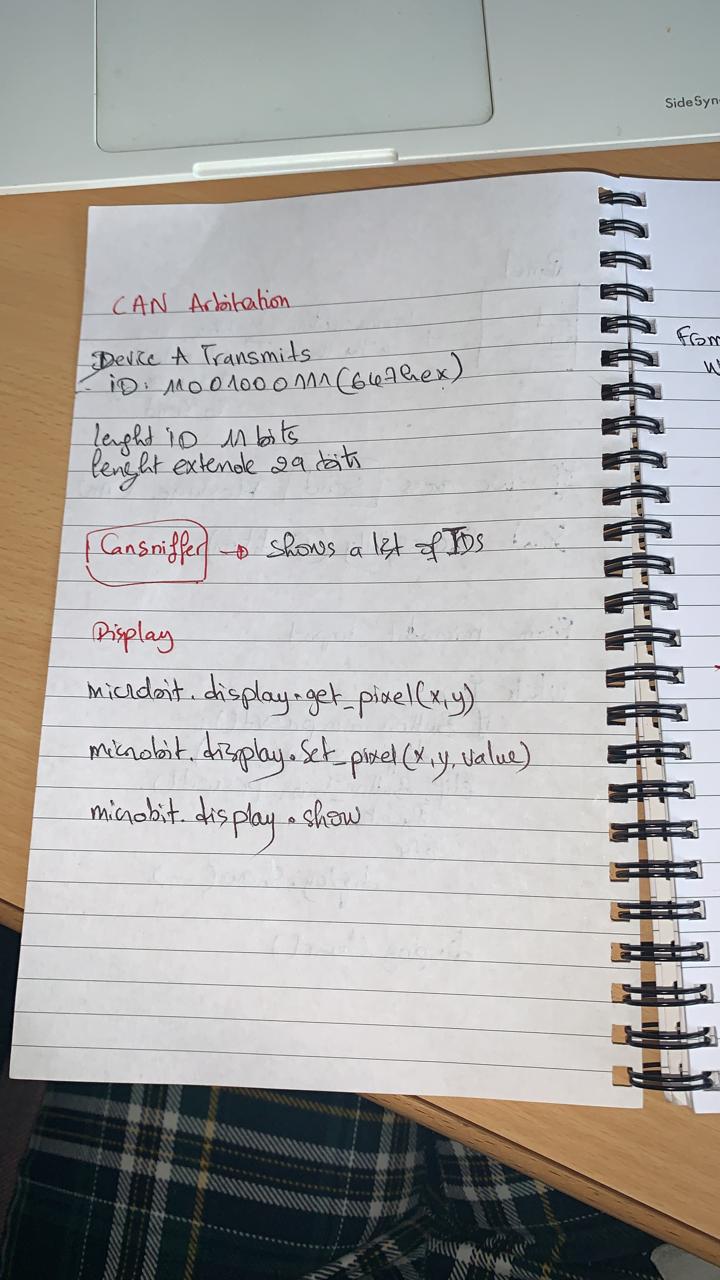 SideSyn
CAN Arbitration
Device A Transmits
- iD: 11001000111 (647hex)
lenght iD 11 bits
lenght extende 29 bits
Cansniffer → shows a list of IDs
Display
microbit.display.get_pixel(x,y)
microbit.display.set_pixel(x,y,value)
microbit.display.show
From
W